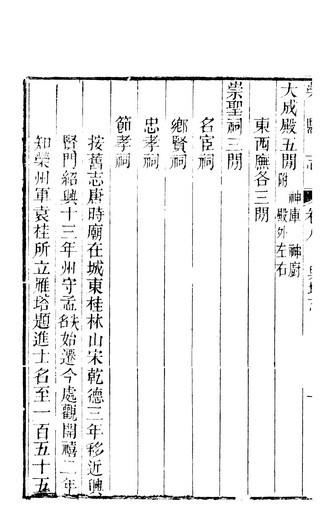 大成殿五閒附神庫神廚殿外左右
東西廡各三閒
崇聖祠三閒
名宦祠
鄉賢祠
忠孝祠
節孝祠
按舊志唐時廟在城東桂林山宋乾德三年移近興
賢門紹興十三年州守孟名缺始遷今處觀開禧二年
知榮州軍袁桂所立雁塔題進士名至一百五十五